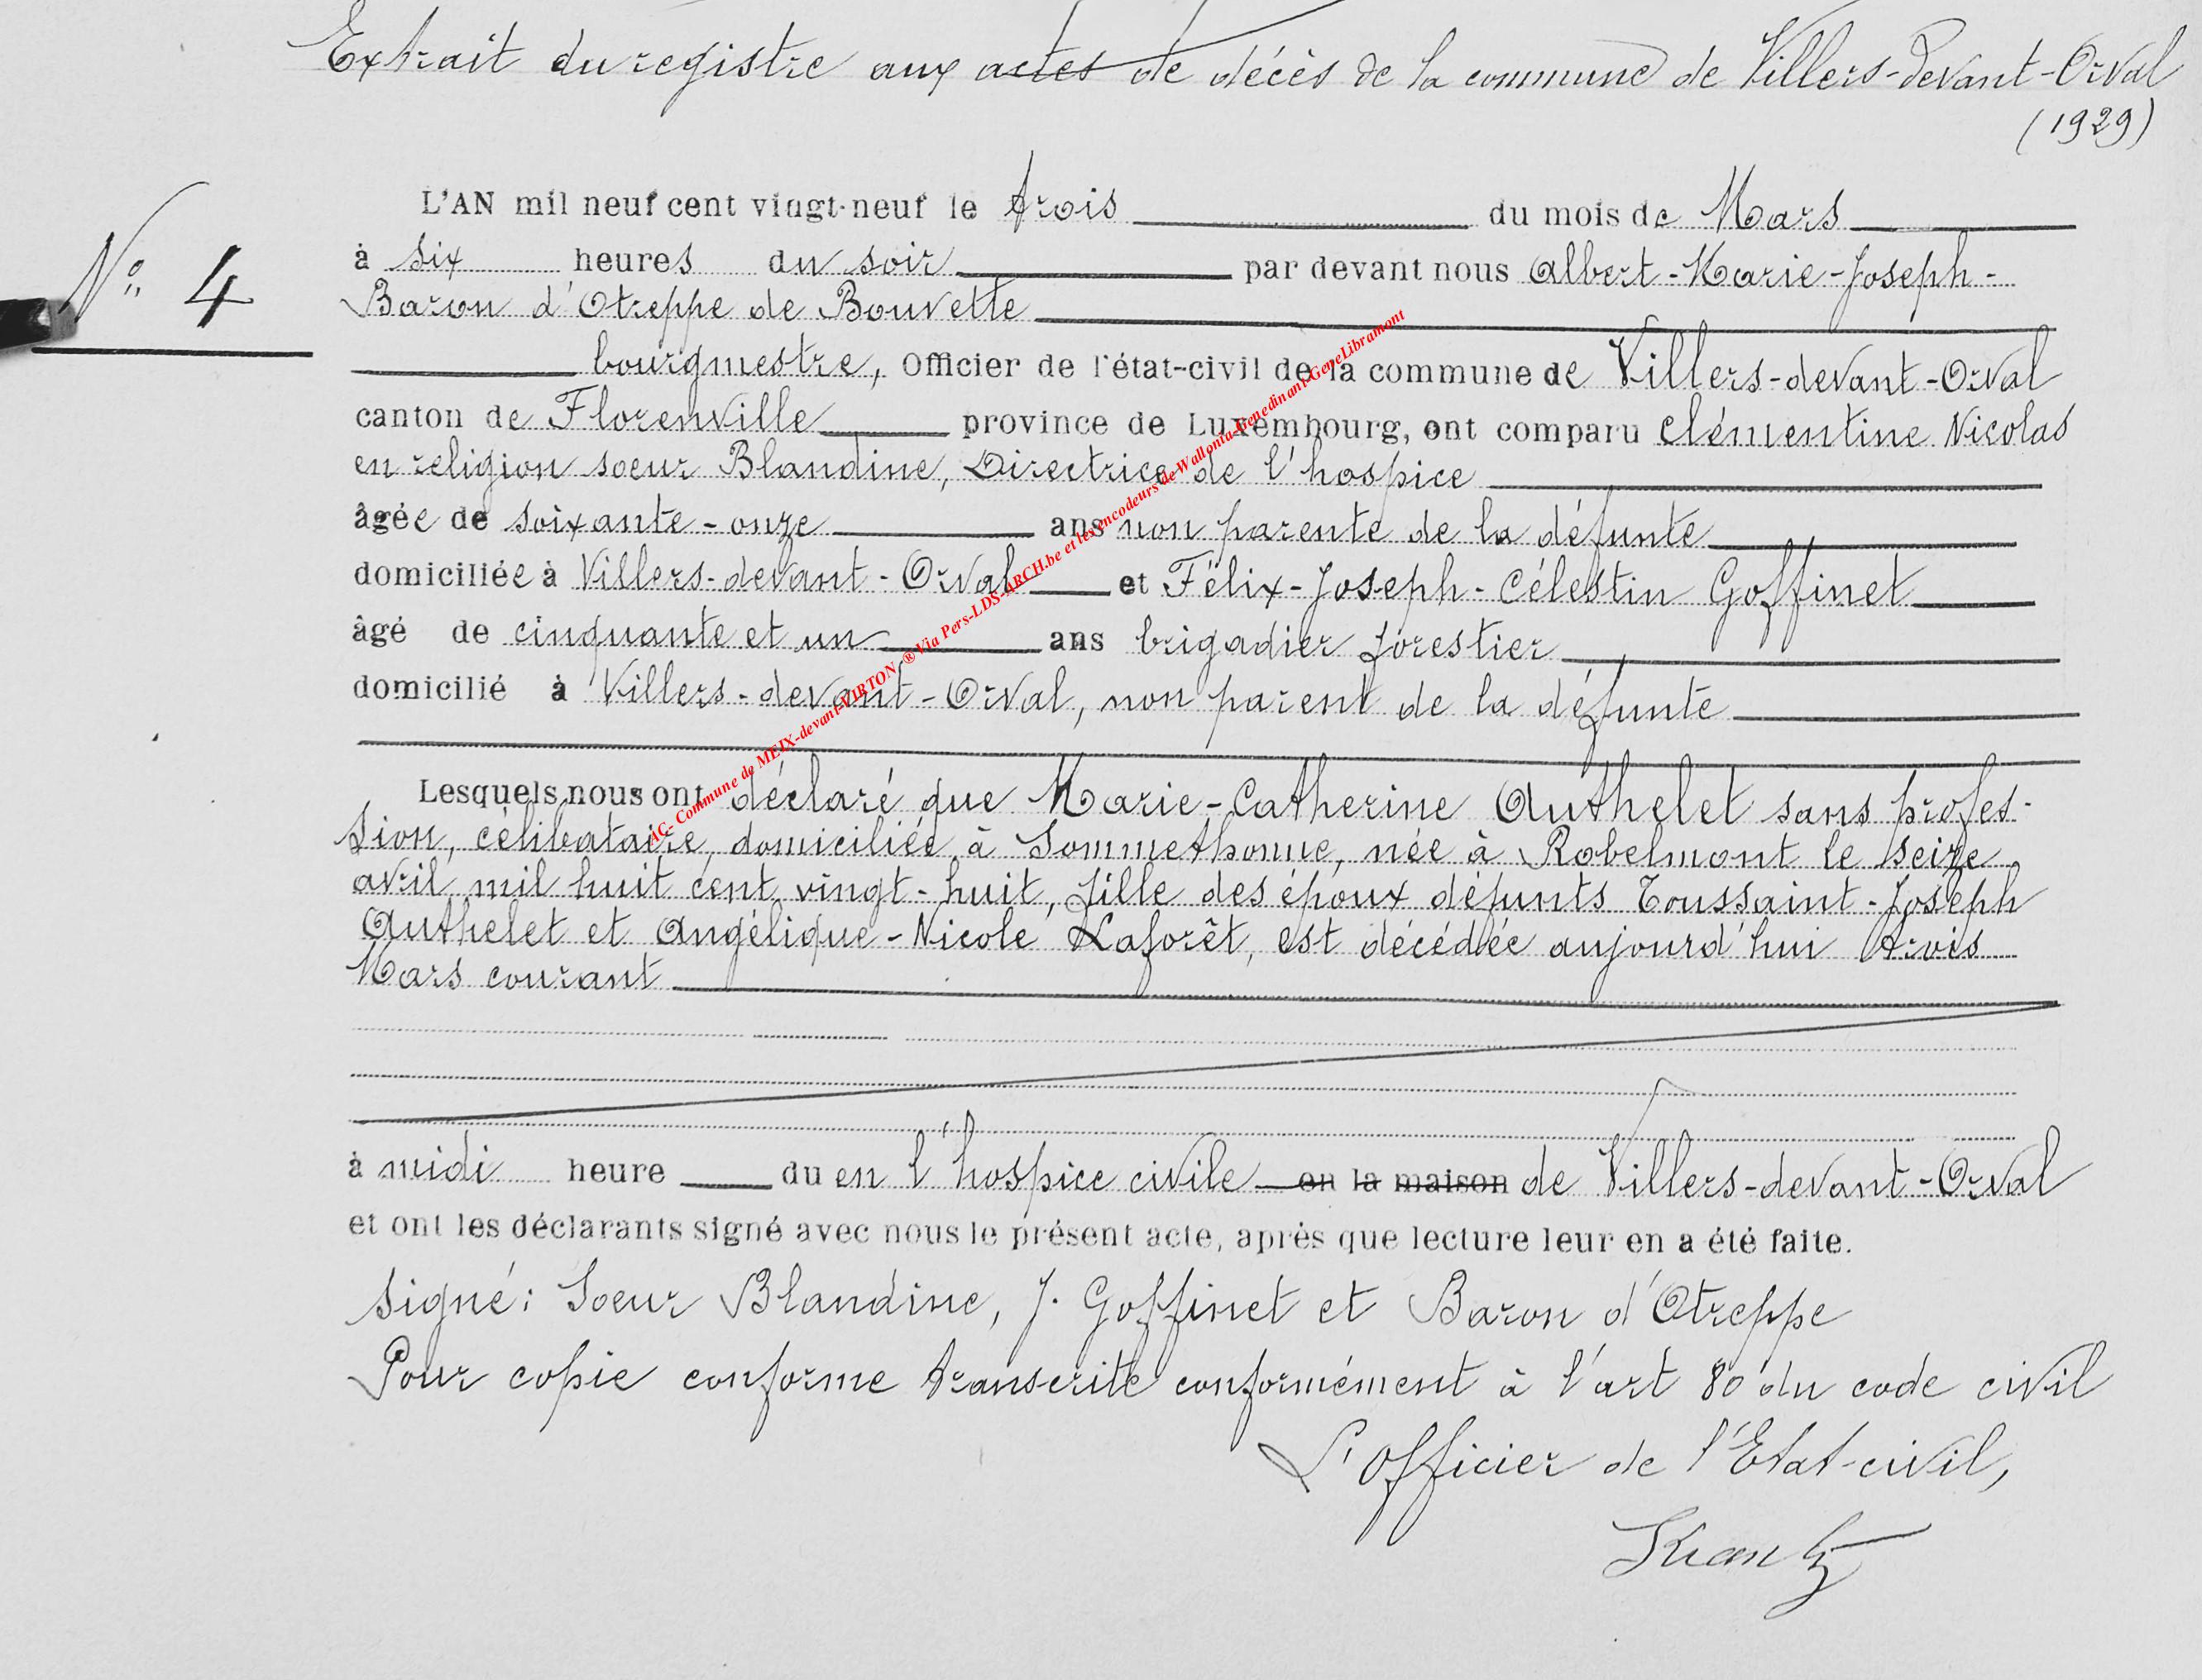 Extrait du registre aux actes de décès de la commune de Villers-devant-Orval
(1929)
L'AN mil neuf cent vingt-neuf le trois du mois de Mars
N° 4
à six heures du soir par devant nous Albert-Marie-Joseph-
Baron d'Otreppe de Bouvette
bourgmestre, Officier de l'état-civil de la commune de Villers-devant-Orval
canton de Florenville province de Luxembourg, ont comparu Clémentine Nicolas
en religion soeur Blandine, Directrice de l'hospice
âgée de soixante-onze ans non parente de la défunte
domiciliée à Villers-devant-Orval et Félix-Joseph-Célestin Goffinet
âgé de cinquante et un ans brigadier forestier
domicilié à Villers-devant-Orval, non parent de la défunte
Lesquels nous ont déclaré que Marie-Catherine Authelet sans profes-
sion, célibataire, domiciliée à Sommethonne, née à Robelmont le seize
avril mil huit cent vingt-huit, fille des époux défunts Toussaint-Joseph
Authelet et Angélique-Nicole Laforêt, est décédée aujourd'hui trois
Mars courant
à midi heure du en l'hospice civile en la maison de Villers-devant-Orval
et ont les déclarants signé avec nous le présent acte, après que lecture leur en a été faite.
Signé: Soeur Blandine, J. Goffinet et Baron d'Otreppe
Pour copie conforme transcrite conformément à l'art 80 du code civil
L'Officier de l'Etat-civil,
AC- Commune de MEIX-devant-VIRTON ® Via Pers-LDS-ARCH.be et les encodeurs de Wallonia-Benedinant-GeneLibramont